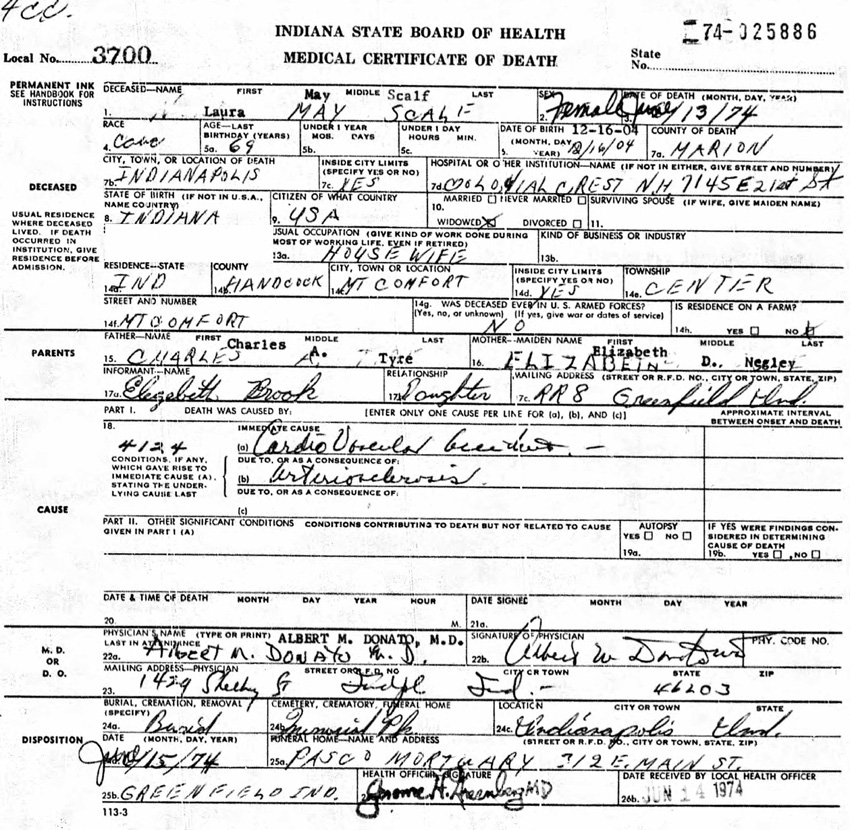 4cc.
INDIANA STATE BOARD OF HEALTH
74-025886
Local No. 3700
MEDICAL CERTIFICATE OF DEATH
State No.
PERMANENT INK
SEE HANDBOOK FOR
INSTRUCTIONS
DECEASED—NAME FIRST MIDDLE LAST SEX DATE OF DEATH (MONTH, DAY, YEAR)
May Scalf
1. Laura MAY SCALF 2. Female 3. June 13/74
RACE AGE—LAST BIRTHDAY (YEARS) UNDER 1 YEAR MOS. DAYS UNDER 1 DAY HOURS MIN. DATE OF BIRTH (MONTH, DAY, YEAR) 12-16-04 COUNTY OF DEATH
4. 5a. 69 5b. 5c. 12/16/04 7a. MARION
CITY, TOWN, OR LOCATION OF DEATH INSIDE CITY LIMITS (SPECIFY YES OR NO) HOSPITAL OR OTHER INSTITUTION—NAME (IF NOT IN EITHER, GIVE STREET AND NUMBER)
7b. INDIANAPOLIS 7c. YES 7d. COLONIAL CREST N.H 7145 E 21st St
DECEASED
USUAL RESIDENCE
WHERE DECEASED
LIVED. IF DEATH
OCCURRED IN
INSTITUTION, GIVE
RESIDENCE BEFORE
ADMISSION.
STATE OF BIRTH (IF NOT IN U.S.A., NAME COUNTRY) CITIZEN OF WHAT COUNTRY MARRIED NEVER MARRIED SURVIVING SPOUSE (IF WIFE, GIVE MAIDEN NAME)
8. INDIANA 9. USA 10. WIDOWED DIVORCED 11.
USUAL OCCUPATION (GIVE KIND OF WORK DONE DURING MOST OF WORKING LIFE, EVEN IF RETIRED) KIND OF BUSINESS OR INDUSTRY
13a. HOUSEWIFE 13b.
RESIDENCE—STATE COUNTY CITY, TOWN OR LOCATION INSIDE CITY LIMITS (SPECIFY YES OR NO) TOWNSHIP
14a. IND 14b. HANDCOCK 14c. MT COMFORT 14d. YES 14e. CENTER
STREET AND NUMBER 14g. WAS DECEASED EVER IN U.S. ARMED FORCES? IS RESIDENCE ON A FARM?
(Yes, no, or unknown) (If yes, give war or dates of service)
14f. MT COMFORT NO 14h. YES NO
PARENTS
FATHER—NAME FIRST MIDDLE LAST MOTHER—MAIDEN NAME FIRST MIDDLE LAST
Charles Elizabeth
15. CHARLES A. Tyre 16. D. Negley
INFORMANT—NAME RELATIONSHIP MAILING ADDRESS (STREET OR R.F.D. NO., CITY OR TOWN, STATE, ZIP)
17a. Elizabeth Brook Daughter 17c. RR8 Greenfield Ind.
PART I. DEATH WAS CAUSED BY: [ENTER ONLY ONE CAUSE PER LINE FOR (a), (b), AND (c)] APPROXIMATE INTERVAL BETWEEN ONSET AND DEATH
18. IMMEDIATE CAUSE
4124 (a) Cardio Vascular Accident
CONDITIONS, IF ANY, WHICH GAVE RISE TO IMMEDIATE CAUSE (A), STATING THE UNDERLYING CAUSE LAST
DUE TO, OR AS A CONSEQUENCE OF:
(b) arteriosclerosis
DUE TO, OR AS A CONSEQUENCE OF:
CAUSE
(c)
PART II. OTHER SIGNIFICANT CONDITIONS CONDITIONS CONTRIBUTING TO DEATH BUT NOT RELATED TO CAUSE GIVEN IN PART I (A)
AUTOPSY YES NO 19a.
IF YES WERE FINDINGS CONSIDERED IN DETERMINING CAUSE OF DEATH 19b. YES NO
DATE & TIME OF DEATH MONTH DAY YEAR HOUR DATE SIGNED MONTH DAY YEAR
20. M. 21a.
M. D.
OR
D. O.
PHYSICIAN'S NAME (TYPE OR PRINT) ALBERT M. DONATO, M.D. SIGNATURE OF PHYSICIAN PHY. CODE NO.
LAST IN ATTENDANCE
22a. Albert M. DONATO M.D. 22b.
MAILING ADDRESS—PHYSICIAN STREET OR R.F.D. NO CITY OR TOWN STATE ZIP
23. 1429 Shelby St Indpl Ind. 46203
DISPOSITION
BURIAL, CREMATION, REMOVAL (SPECIFY) CEMETERY, CREMATORY, FUNERAL HOME LOCATION CITY OR TOWN STATE
24a. Burial 24b. Memorial Pk 24c. Indianapolis Ind.
DATE (MONTH, DAY, YEAR) FUNERAL HOME—NAME AND ADDRESS (STREET OR R.F.D. NO., CITY OR TOWN, STATE, ZIP)
June/15/74 25a. PASCO MORTUARY 312 E. MAIN ST.
HEALTH OFFICER SIGNATURE DATE RECEIVED BY LOCAL HEALTH OFFICER
25b. GREENFIELD IND. MD 26b. JUN 14 1974
113-3